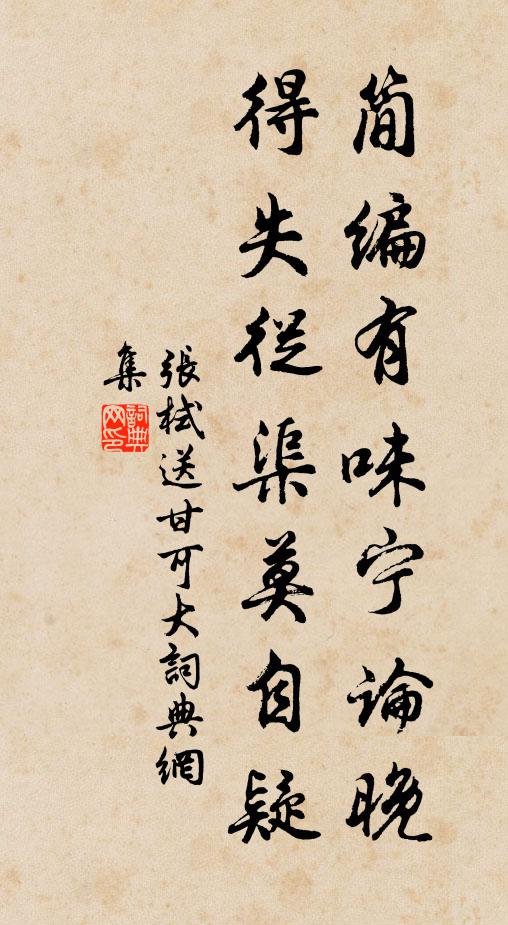 简编有味宁论晚
得失從渠莫自疑
張栻送甘可大詞典網
集
詞典网印